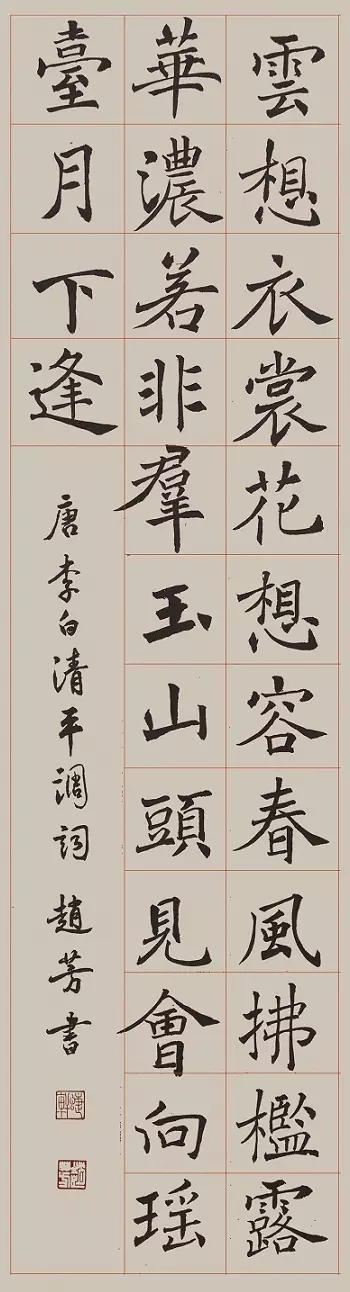 雲想衣裳花想容春風拂檻露
華濃若非羣玉山頭見會向瑶
臺月下逢
唐李白清平調詞 趙芳書